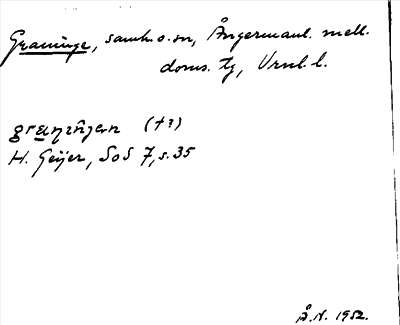 Graninge, samh. o. sn, Ångermanl. mell.
doms. tg, Vrnl. l.
(+?)
H. Geijer, SoS 7, s. 35
Å.N. 1952.